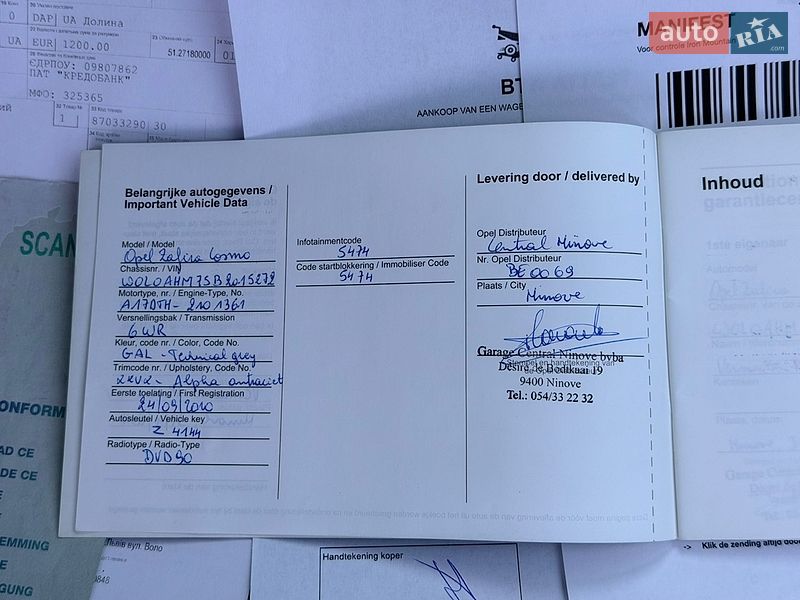 DAP UA Долина
UA EUR 1200.00
51.27180000
ЄДРПОУ: 09807862
ПАТ "КРЕДОБАНК"
МФО: 325365
1 87033290 30
BT
AANKOOP VAN EEN WAGE
MANIFEST
Voor controle Iron Mountain
auto RIA
.com
SCAN
Belangrijke autogegevens /
Important Vehicle Data
Model / Model
Opel Zafira Cosmo
Chassisnr. / VIN
W0L0AHM75B2015272
Motortype, nr. / Engine-Type, No.
A17DTH - 2101361
Versnellingsbak / Transmission
6WR
Kleur, code nr. / Color, Code No.
GAL - Technical grey
Trimcode nr. / Upholstery, Code No.
22V2 - Alpha antraciet
Eerste toelating / First Registration
24/09/2010
Autosleutel / Vehicle key
Z 4144
Radiotype / Radio-Type
DVD90
Infotainmentcode
5474
Code startblokkering / Immobiliser Code
5474
Levering door / delivered by
Opel Distributeur
Central Ninove
Nr. Opel Distributeur
BE0069
Plaats / City
Ninove
Garage Central Ninove bvba
Stempel en handtekening van
Désiré de Bodtkaai 19
9400 Ninove
Tel.: 054/33 22 32
Inhoud
ONFORM
AD CE
DE CE
EMMING
GUNG
Львів вул.
Handtekening koper
-> Klik de zending altijd